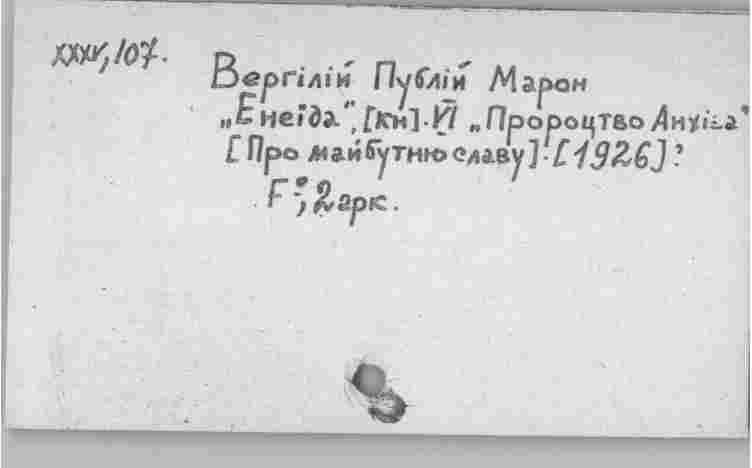 XXXV, 107.
Вергілій Публій Марон
„Енеїда", [кн]. VI „Пророцтво Анхіза"
[Про майбутню славу]. [1926]?
F°; 2 арк.